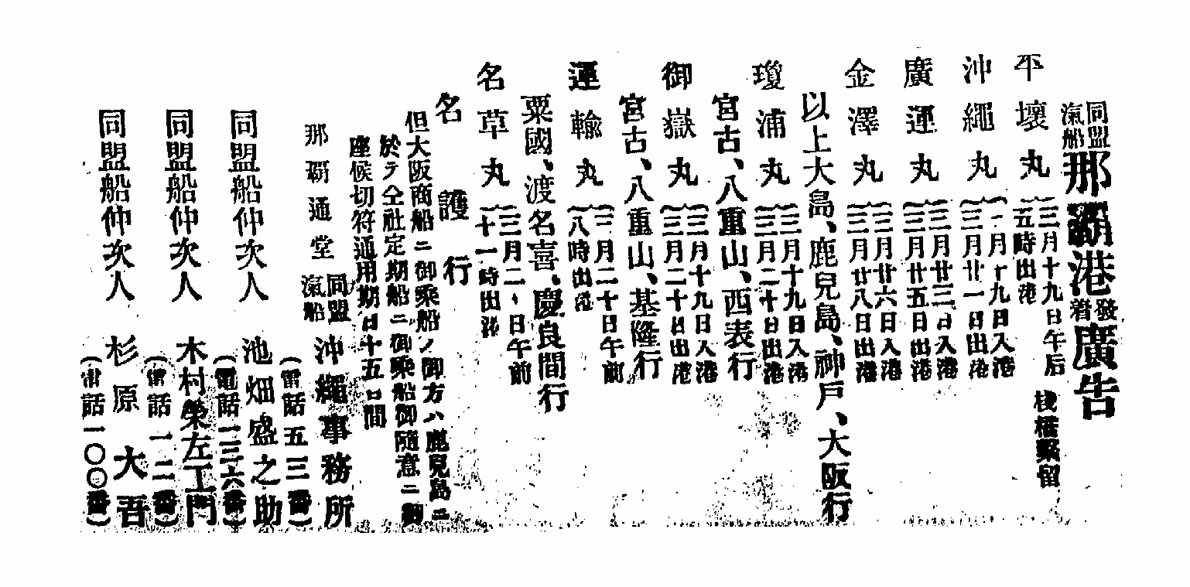 同盟汽船那覇港発着廣告
平壤丸 三月十九日午后五時出港 棧橋繫留
沖繩丸 三月十九日入港 三月廿一日出港
廣運丸 三月廿三日入港 三月廿五日出港
金澤丸 三月廿六日入港 三月廿八日出港
以上大島、鹿兒島、神戶、大阪行
瓊浦丸 三月十九日入港 三月二十日出港
宮古、八重山、西表行
御嶽丸 三月十九日入港 三月二十日出港
宮古、八重山、基隆行
運輸丸 三月二十日午前八時出港
粟國、渡名喜、慶良間行
名草丸 三月二、日午前十一時出港
名護行
但大阪商船ニ御乘船ノ御方ハ鹿兒島ニ
於テ仝社定期船ニ御乘船御隨意ニ御
座候切符通用期日十五日間
那覇通堂 同盟汽船 沖繩事務所
(電話五三番)
同盟船仲次人 池畑盛之助
(電話一二六番)
同盟船仲次人 木村榮左工門
(電話一二番)
同盟船仲次人 杉原大吾
(電話一〇〇番)